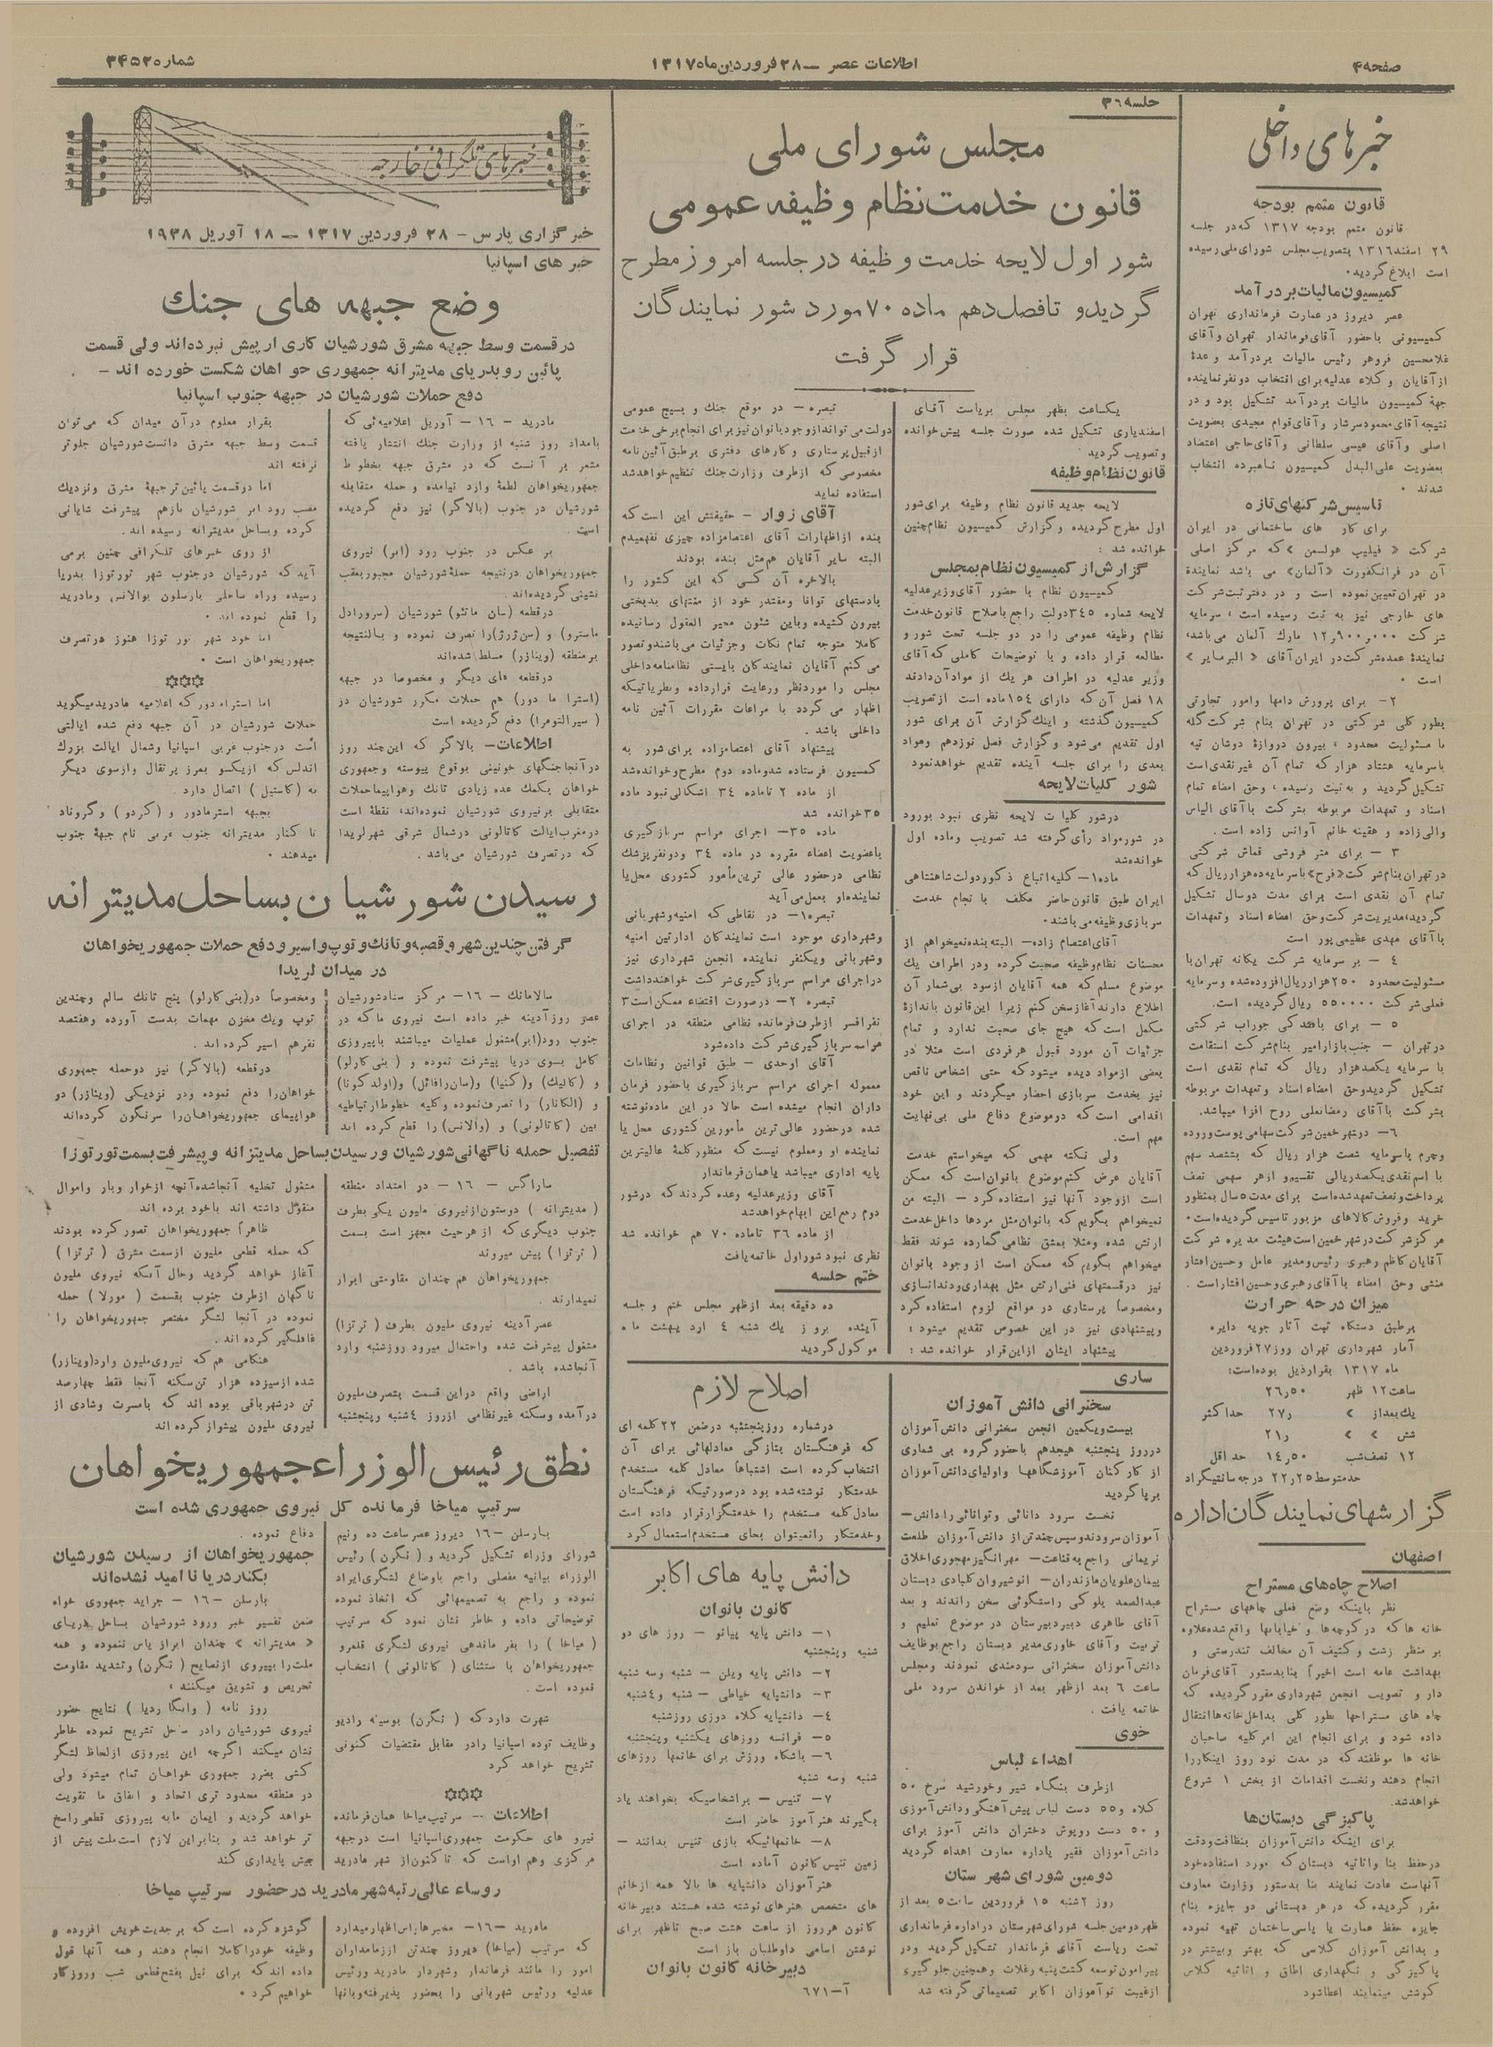 صفحه ۴
اطلاعات عصر – ۲۸ فروردین ماه ۱۳۱۷
شماره ۳۴۵۲
خبرهای داخلی
قانون متمم بودجه
قانون متمم بودجه ۱۳۱۷ که در جلسه
۲۹ اسفند ۱۳۱۶ بتصویب مجلس شورای ملی رسیده
است ابلاغ گردید.
کمیسیون مالیات بر درآمد
عصر دیروز در عمارت فرمانداری تهران
کمیسیونی با حضور آقای فرماندار تهران و آقای
غلامحسین فروهر رئیس مالیات بر درآمد و عدۀ
از آقایان وکلاء عدلیه برای انتخاب دو نفر نماینده
جهة کمیسیون مالیات بر درآمد تشکیل بود و در
نتیجه آقای محمود سرشار و آقای قوام مجیدی بعضویت
اصلی و آقای عیسی سلطانی و آقای حاجی اعتضاد
بعضویت علی البدل کمیسیون نامبرده انتخاب
شدند .
تاسیس شرکتهای تازه
برای کار های ساختمانی در ایران
شرکت « فیلیپ هولسمن » که مرکز اصلی
آن در فرانکفورت «آلمان» می باشد نمایندۀ
در تهران تعیین نموده است و در دفتر ثبت شرکت
های خارجی نیز به ثبت رسیده است ، سرمایه
نمایندۀ عمده شرکت در ایران آقای « البرمایر »
است .
۲- برای پرورش دامها وامور تجارتی
بطور کلی شرکتی در تهران بنام شرکت گله
با مسئولیت محدود ، بیرون دروازۀ دوشان تپه
باسرمایه هشتاد هزار که تمام آن غیر نقدی است
تشکیل گردید و به ثبت رسیده ، وحق امضاء تمام
اسناد و تعهدات مربوطه بشرکت با آقای الیاس
۳ – برای متر فروشی قماش شرکتی
در تهران بنام شرکت «فرح» باسرمایه ده هزار ریال که
تمام آن نقدی است برای مدت دو سال تشکیل
گردید ، مدیریت شرکت وحق امضاء اسناد و تعهدات
با آقای مهدی عظیمی پور است
۴ – بر سرمایه شرکت یگانه تهران با
مسئولیت محدود ۲۵۰ هزار ریال افزوده شده و سرمایه
فعلی شرکت ۵۵۰۰۰۰ ریال گردیده است.
۵ – برای بافندگی جوراب شرکتی
در تهران – جنب بازار امیر بنام شرکت استقامت
با سرمایه یکصد هزار ریال که تمام نقدی است
تشکیل گردید وحق امضاء اسناد و تعهدات مربوطه
بشرکت با آقای رمضانعلی روح افزا میباشد.
۶- در شهر خمین شرکت سهامی پوست وروده
وچرم باسرمایه شصت هزار ریال که بششصد سهم
با اسم نقدی یکصد ریالی تقسیم و از هر سهمی نصف
پرداخت و نصف تعهد شده است برای مدت ۵ سال بمنظور
خرید و فروش کالاهای مزبور تاسیس گردیده است ،
مرکز شرکت در شهر خمین است هیئت مدیره شرکت
آقایان کاظم رهبری رئیس و مدیر عامل و حسین افتخار
منشی وحق امضاء با آقای رهبری وحسین افتخار است .
میزان درجه حرارت
برطبق دستگاه ثبت آثار جویه دایره
آمار شهرداری تهران روز ۲۷ فروردین
ماه ۱۳۱۷ بقرار ذیل بوده است:
ساعت ۱۲ ظهر ۲۶٫۵۰
یک بعداز » ۲۷٫ حداکثر
شش » » ۲۱٫
۱۲ نصف شب ۱۴٫۵۰ حداقل
حد متوسط ۲۲٫۲۵ درجه سانتیگراد
گزارشهای نمایندگان اداره
اصفهان
اصلاح چاه های مستراح
نظر باینکه وضع فعلی چاههای مستراح
خانه ها که در کوچه ها و خیابانها واقع شده علاوه
بر منظر زشت و کثیف آن مخالف تندرستی و
بهداشت عامه است اخیراً بنا بدستور آقای فرمان
دار و تصویب انجمن شهرداری مقرر گردیده که
چاه های مستراحها بطور کلی بداخل خانه ها انتقال
داده شود و برای انجام این امر کلیه صاحبان
خانه ها موظفند که در مدت نود روز اینکار را
انجام دهند و نخست اقدامات از بخش ۱ شروع
خواهد شد.
پاکیزگی دبستان ها
برای اینکه دانش آموزان بنظافت و دقت
در حفظ بنا و اثاثیه دبستان که مورد استفاده خود
آنهاست عادت نمایند بنا بدستور وزارت معارف
مقرر گردیده که در هر دبستانی دو جایزه بنام
جایزه حفظ عمارت یا پاسی ساختمان تهیه نموده
و بدانش آموزان کلاسی که بهتر و بیشتر در
پاکیزگی و نگهداری اطاق و اثاثیه کلاس
کوشش مینمایند اعطا شود
جلسه ۳۶
مجلس شورای ملی
قانون خدمت نظام وظیفه عمومی
شور اول لایحه خدمت وظیفه در جلسه امروز مطرح
گردید و تا فصل دهم ماده ۷۰ مورد شور نمایندگان
قرار گرفت
یکساعت بظهر مجلس بریاست آقای
اسفندیاری تشکیل شده صورت جلسه پیش خوانده
و تصویب گردید
قانون نظام وظیفه
لایحه جدید قانون نظام وظیفه برای شور
اول مطرح گردیده و گزارش کمیسیون نظام چنین
خوانده شد :
گزارش از کمیسیون نظام بمجلس
کمیسیون نظام با حضور آقای وزیر عدلیه
لایحه شماره ۳۴۵ دولت راجع باصلاح قانون خدمت
نظام وظیفه عمومی را در دو جلسه تحت شور و
مطالعه قرار داده و با توضیحات کاملی که آقای
وزیر عدلیه در اطراف هر یک از مواد آن دادند
۱۸ فصل آن که دارای ۱۵۴ ماده است از تصویب
کمیسیون گذشته و اینک گزارش آن برای شور
اول تقدیم می شود و گزارش فصل نوزدهم ومواد
بعدی را برای جلسه آینده تقدیم خواهد نمود
شور کلیات لایحه
در شور کلیات لایحه نظری نبود بورود
در شور مواد رأی گرفته شد تصویب وماده اول
خوانده شد
ماده ۱- کلیه اتباع ذکور دولت شاهنشاهی
ایران طبق قانون حاضر مکلف با نجام خدمت
سربازی وظیفه می باشند .
آقای اعتصام زاده – البته بنده نمیخواهم از
محسنات نظام وظیفه صحبت کرده و در اطراف یک
موضوع مسلم که همه آقایان از سود بی شمار آن
اطلاع دارند آغاز سخن کنم زیرا این قانون باندازۀ
مکمل است که هیچ جای صحبت ندارد و تمام
جزئیات آن مورد قبول هر فردی است مثلا در
بعضی از مواد دیده میشود که حتی اشخاص ناقص
نیز بخدمت سربازی احضار میگردند و این خود
اقدامی است که در موضوع دفاع ملی بی نهایت
مهم است .
ولی نکته مهمی که میخواستم خدمت
آقایان عرض کنم موضوع بانوان است که ممکن
است از وجود آنها نیز استفاده کرد – البته من
نمیخواهم بگویم که بانوان مثل مردها داخل خدمت
ارتش شده ومثلا بمشق نظامی گمارده شوند فقط
میخواهم بگویم که ممکن است از وجود بانوان
نیز در قسمتهای فنی ارتش مثل بهداری و دندانسازی
ومخصوصا پرستاری در مواقع لزوم استفاده کرد
و پیشنهادی نیز در این خصوص تقدیم میشود :
پیشنهاد ایشان از این قرار خوانده شد :
تبصره – در موقع جنگ و بسیج عمومی
دولت می تواند از وجود بانوان نیز برای انجام برخی خدمت
از قبیل پرستاری و کارهای دفتری بر طبق آئین نامه
مخصوصی که از طرف وزارت جنگ تنظیم خواهد شد
استفاده نماید
آقای زوار – حقیقتش این است که
بنده از اظهارات آقای اعتصام زاده چیزی نفهمیدم
البته سایر آقایان هم مثل بنده بودند
بالاخره آن کسی که این کشور را
بادستهای توانا ومقتدر خود از منتهای بدبختی
بیرون کشیده و باین شئون محیر العقول رسانیده
کاملا متوجه تمام نکات و جزئیات می باشند و تصور
می کنم آقایان نمایندگان بایستی نظامنامه داخلی
مجلس را مورد نظر و رعایت قرارداده و نظریاتیکه
اظهار می گردد با مراعات مقررات آئین نامه
داخلی باشد .
پیشنهاد آقای اعتصام زاده برای شور به
کمسیون فرستاده شد وماده دوم مطرح و خوانده شد
از ماده ۲ تا ماده ۳۴ اشکالی نبود ماده
۳۵ خوانده شد
ماده ۳۵– اجرای مراسم سربازگیری
باعضویت اعضاء مقرره در ماده ۳۴ و دو نفر پزشک
نظامی در حضور عالی ترین مأمور کشوری محل یا
نماینده او بعمل می آید
تبصره ۱- در نقاطی که امنیه وشهربانی
وشهرداری موجود است نمایندگان ادارتین امنیه
و شهربانی و یکنفر نماینده انجمن شهرداری نیز
در اجرای مراسم سربازگیری شرکت خواهند داشت
تبصره ۲- در صورت اقتضاء ممکن است ۳
نفر افسر از طرف فرمانده نظامی منطقه در اجرای
مراسم سربازگیری شرکت داده شود
آقای اوحدی – طبق قوانین و نظامات
معموله اجرای مراسم سربازگیری با حضور فرمان
داران انجام میشده است حالا در این ماده نوشته
شده در حضور عالی ترین مأمورین کشوری محل یا
نماینده او ومعلوم نیست که منظور کلمۀ عالیترین
پایه اداری میباشد یا همان فرماندار
آقای وزیر عدلیه وعده کردند که در شور
دوم رفع این ابهام خواهد شد
از ماده ۳۶ تا ماده ۷۰ هم خوانده شد
نظری نبود شور اول خاتمه یافت
ختم جلسه
ده دقیقه بعد از ظهر مجلس ختم و جلسه
آینده بروز یک شنبه ۴ اردیبهشت ماه
موکول گردید
ساری
سخنرانی دانش آموزان
بیست و یکمین انجمن سخنرانی دانش آموزان
در روز پنجشنبه هیجدهم با حضور گروه بی شماری
از کارکنان آموزشگاهها و اولیای دانش آموزان
برپا گردید
نخست سرود دانائی و توانائی را دانش –
آموزان سرودند وسپس چند تن از دانش آموزان طلعت
نریمانی راجع به قناعت – مهرانگیز مهجوری اخلاق
پیمان علویان مازندران – انوشیروان کلبادی دبستان
عبدالصمد بلوکی راستگوئی سخن راندند و بعد
آقای طاهری دبیر دبیرستان در موضوع تعلیم و
تربیت و آقای خاوری مدیر دبستان راجع بوظایف
دانش آموزان سخنرانی سودمندی نمودند و مجلس
ساعت ۶ بعد از ظهر بعد از خواندن سرود ملی
خاتمه یافت .
خوی
اهداء لباس
از طرف بنگاه شیر و خورشید سرخ ۵۰
کلاه و ۵۵ دست لباس پیش آهنگی و دانش آموزی
و ۵۰ دست روپوش دختران دانش آموز برای
دانش آموزان فقیر باداره معارف اهداء گردید
دومین شورای شهرستان
روز ۲ شنبه ۱۵ فروردین ساعت ۵ بعد از
ظهر دومین جلسه شورای شهرستان در اداره فرمانداری
تحت ریاست آقای فرماندار تشکیل گردید و در
پیرامون توسعه کشت پنبه و غلات و همچنین جلوگیری
از غیبت نوآموزان اکابر تصمیماتی گرفته شد
اصلاح لازم
در شماره روز پنجشنبه در ضمن ۲۲ کلمه ای
که فرهنگستان بتازگی معادلهائی برای آن
انتخاب کرده است اشتباهاً معادل کلمه مستخدم
خدمتکار نوشته شده بود در صورتیکه فرهنگستان
معادل کلمه مستخدم را خدمتگزار قرار داده است
وخدمتکار را نمیتوان بجای مستخدم استعمال کرد
دانش پایه های اکابر
کانون بانوان
۱– دانش پایه پیانو – روز های دو
شنبه و پنجشنبه
۲– دانش پایه ویلن – شنبه وسه شنبه
۳– دانشپایه خیاطی – شنبه و ۴ شنبه
۴– دانشپایه کلاه دوزی روز شنبه
۵– فرانسه روزهای یکشنبه و پنجشنبه
۶– باشگاه ورزش برای خانمها روزهای
شنبه وسه شنبه
۷– تنیس – براشخاصیکه بخواهند یاد
بگیرند هنر آموز حاضر است
۸– خانمهائیکه بازی تنیس بدانند –
زمین تنیس کانون آماده است
هنر آموزان دانشپایه ها بالا همه از خانم
های متخصص هنرهای نوشته شده هستند دبیرخانه
کانون هر روز از ساعت هشت صبح تا ظهر برای
نوشتن اسامی داوطلبان باز است
دبیرخانه کانون بانوان
آ–۶۷۱
خبرهای تلگرافی خارجه
خبرگزاری پارس – ۲۸ فروردین ۱۳۱۷ – ۱۸ آوریل ۱۹۳۸
خبر های اسپانیا
وضع جبهه های جنگ
در قسمت وسط جبهه مشرق شورشیان کاری از پیش نبرده اند ولی قسمت
پائین رو بدریای مدیترانه جمهوری خواهان شکست خورده اند –
دفع حملات شورشیان در جبهه جنوب اسپانیا
مادرید – ۱۶– آوریل اعلامیه ئی که
بامداد روز شنبه از وزارت جنگ انتشار یافته
مشعر بر آنست که در مشرق جبهه بخطوط
جمهوریخواهان لطمۀ وارد نیامده و حمله متقابله
شورشیان در جنوب (بالاگر) نیز دفع گردیده
است
بر عکس در جنوب رود (ابر) نیروی
جمهوریخواهان در نتیجه حملۀ شورشیان مجبور بعقب
نشینی گردیده اند .
در قطعه (سان ماتئو) شورشیان (سرورادل
ماسترو) و (سن ژرژ) را تصرف نموده و بالنتیجه
بر منطقه (وینارز) مسلط شده اند
در قطعه های دیگر و مخصوصا در جبهه
(استرا ما دور) هم حملات مکرر شورشیان در
( سیر التومرا ) دفع گردیده است
اطلاعات – بالاگر که این چند روز
در آنجا جنگهای خونینی بوقوع پیوسته وجمهوری
خواهان بکمک عده زیادی تانک و هواپیما حملات
متقابلی بر نیروی شورشیان نموده اند ، نقطۀ است
در مغرب ایالت کاتالونی در شمال شرقی شهر لریدا
که در تصرف شورشیان می باشد .
بقرار معلوم در آن میدان که می توان
قسمت وسط جبهه مشرق دانست شورشیان جلوتر
نرفته اند
اما در قسمت پائین تر جبهۀ مشرق ونزدیک
مصب رود ابر شورشیان بازهم پیشرفت شایانی
کرده و بساحل مدیترانه رسیده اند .
از روی خبرهای تلگرافی چنین برمی
آید که شورشیان در جنوب شهر تورتوزا بدریا
رسیده وراه ساحلی بارسلون بوالانس و مادرید
را قطع نموده اند .
اما خود شهر تورتوزا هنوز در تصرف
جمهوریخواهان است .
***
اما استرامادور که اعلامیه مادرید میگوید
حملات شورشیان در آن جبهه دفع شده ایالتی
است در جنوب غربی اسپانیا وشمال ایالت بزرگ
اندلس که از یکسو بمرز پرتقال و از سوی دیگر
به ( کاستیل ) اتصال دارد .
بجبهه استرمادور و (کردو) و گروناد
تا کنار مدیترانه جنوب غربی نام جبهۀ جنوب
میدهند .
رسیدن شورشیان بساحل مدیترانه
گرفتن چندین شهر و قصبه و تانک و توپ و اسیر و دفع حملات جمهوریخواهان
در میدان لریدا
سالامانک – ۱۶– مرکز ستاد شورشیان
عصر روز آدینه خبر داده است نیروی ما که در
جنوب رود (ابر) مشغول عملیات میباشند با پیروزی
کامل بسوی دریا پیشرفت نموده و ( بنی کارلو)
و (کالیک) و (کنیا) و (سان رافائل) و (اولدکونا)
و (الکانار) را تصرف نموده و کلیه خطوط ارتباطیه
بین (کاتالونی) و (والانس) را قطع کرده اند
ومخصوصا در (بنی کارلو) پنج تانک سالم وچندین
توپ ویک مخزن مهمات بدست آورده و هفتصد
نفر هم اسیر کرده اند .
در قطعه (بالاگر) نیز دو حمله جمهوری
خواهان را دفع نموده و در نزدیکی (وینازر) دو
هواپیمای جمهوریخواهان را سرنگون کرده اند
تفصیل حمله ناگهانی شورشیان و رسیدن بساحل مدیترانه و پیشرفت بسمت تورتوزا
ساراگس – ۱۶– در امتداد منطقه
( مدیترانه ) دوستون از نیروی ملیون یکی بطرف
جنوب و دیگری که از هر حیث مجهز است بسمت
( ترتزا ) پیش میروند
جمهوریخواهان هم چندان مقاومتی ابراز
نمیدارند .
عصر آدینه نیروی ملیون بطرف ( ترتزا )
مشغول پیشرفت شده و احتمال میرود روز شنبه وارد
آنجا شده باشد .
اراضی واقع در این قسمت بتصرف ملیون
در آمده وسکنه غیر نظامی از روز ۴ شنبه و پنجشنبه
مشغول تخلیه آنجا شده آنچه از خوار وبار و اموال
منقول داشته اند باخود برده اند
ظاهراً جمهوریخواهان تصور کرده بودند
که حمله قطعی ملیون از سمت مشرق ( ترتزا )
آغاز خواهد گردید وحال آنکه نیروی ملیون
ناگهان از طرف جنوب بقسمت ( مورلا ) حمله
نموده در آنجا لشگر مختصر جمهوریخواهان را
غافلگیر کرده اند .
هنگامی هم که نیروی ملیون وارد (وینازر)
شده از سیزده هزار تن سکنه آنجا فقط چهارصد
تن در شهر باقی بوده اند که بامسرت وشادی از
نیروی ملیون پیشواز کرده اند
نطق رئیس الوزراء جمهوریخواهان
سرتیپ میاخا فرمانده کل نیروی جمهوری شده است
بارسلن –۱۶– دیروز عصر ساعت ده ونیم
شورای وزراء تشکیل گردید و ( نگرن ) رئیس
الوزراء بیانیه مفصلی راجع باوضاع لشگری ایراد
نموده و راجع به تصمیمهائی که اتخاذ نموده
توضیحاتی داده و خاطر نشان نمود که سرتیپ
( میاخا ) را بفرماندهی نیروی لشگری قلمرو
جمهوریخواهان با ستثنای ( کاتالونی ) انتخاب
نموده است .
شهرت دارد که ( نگرن ) بوسیله رادیو
وظایف توده اسپانیا را در مقابل مقتضیات کنونی
تشریح خواهد کرد
***
اطلاعات – سرتیپ میاخا همان فرمانده
نیرو های حکومت جمهوری اسپانیا است در جبهه
مرکزی وهم اواست که تا کنون از شهر مادرید
دفاع نموده .
جمهوریخواهان از رسیدن شورشیان
بکنار دریا نا امید نشده اند
بارسلن –۱۶– جراید جمهوری خواه
ضمن تفسیر خبر ورود شورشیان بساحل دریای
« مدیترانه » چندان ابراز یأس ننموده و همه
ملت را بپیروی از نصایح ( نگرن ) و تشدید مقاومت
تحریص و تشویق میکنند ،
روز نامه ( وانگاردیا ) نتایج حضور
نیروی شورشیان را در ساحل تشریح نموده خاطر
نشان میکند اگرچه این پیروزی از لحاظ لشگر
کشی بضرر جمهوری خواهان تمام میشود ولی
در منطقه محدود تری اتحاد و اتفاق ما تقویت
خواهد گردید و ایمان ما به پیروزی قطعی راسخ
تر خواهد شد و بنابر این لازم است ملت بیش از
پیش پایداری کند
روساء عالی رتبه شهر مادرید در حضور سرتیپ میاخا
مادرید –۱۶– مخبر هاواس اظهار میدارد
که سرتیپ (میاخا) دیروز چند تن از زمامداران
امور را مانند فرماندار و شهردار مادرید و رئیس
عدلیه و رئیس شهربانی را بحضور پذیرفته و بآنها
گوشزد کرده است که بر جدیت خویش افزوده و
وظیفه خود را کاملا انجام دهند و همه آنها قول
داده اند که برای نیل بفتح قطعی شب و روز کار
خواهیم کرد .